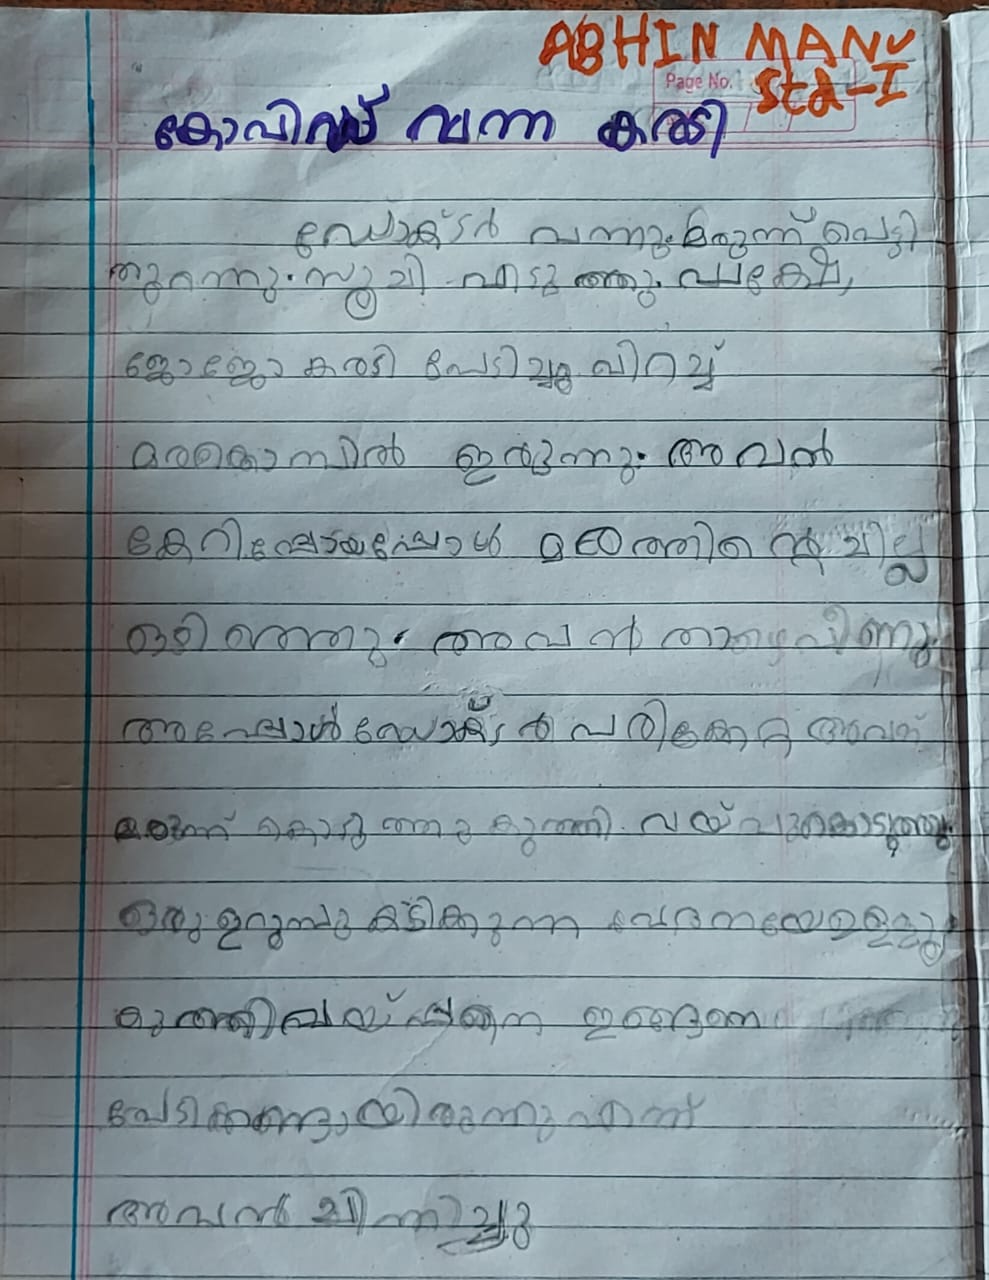 ABHIN MANU
Page No.
Std-I
കോവിഡ് വന്ന കരടി
ഡോക്ടർ വന്നു. മരുന്ന് പെട്ടി
തുറന്നു. സൂചി എടുത്തു. പക്ഷേ,
ജോജോ കരടി പേടിച്ചു വിറച്ച്
മരകൊമ്പിൽ ഇരുന്നു. അവൻ
കേറിപ്പോയപ്പോൾ മരത്തിന്റെ ചില്ല
ഒടിഞ്ഞു. അവൻ താഴെ വീണു.
അപ്പോൾ ഡോക്ടർ പരിക്കേറ്റ അവന്
മരുന്ന് കൊടുത്തു കുത്തി വയ്പുംകൊടുത്തു.
ഒരു ഉറുമ്പു കടിക്കുന്ന വേദനയേഉള്ളൂ
കുത്തിവയ്പ്പിന് ഇങ്ങനെ
പേടിക്കണ്ടായിരുന്നു എന്ന്
അവൻ ചിന്തിച്ചു